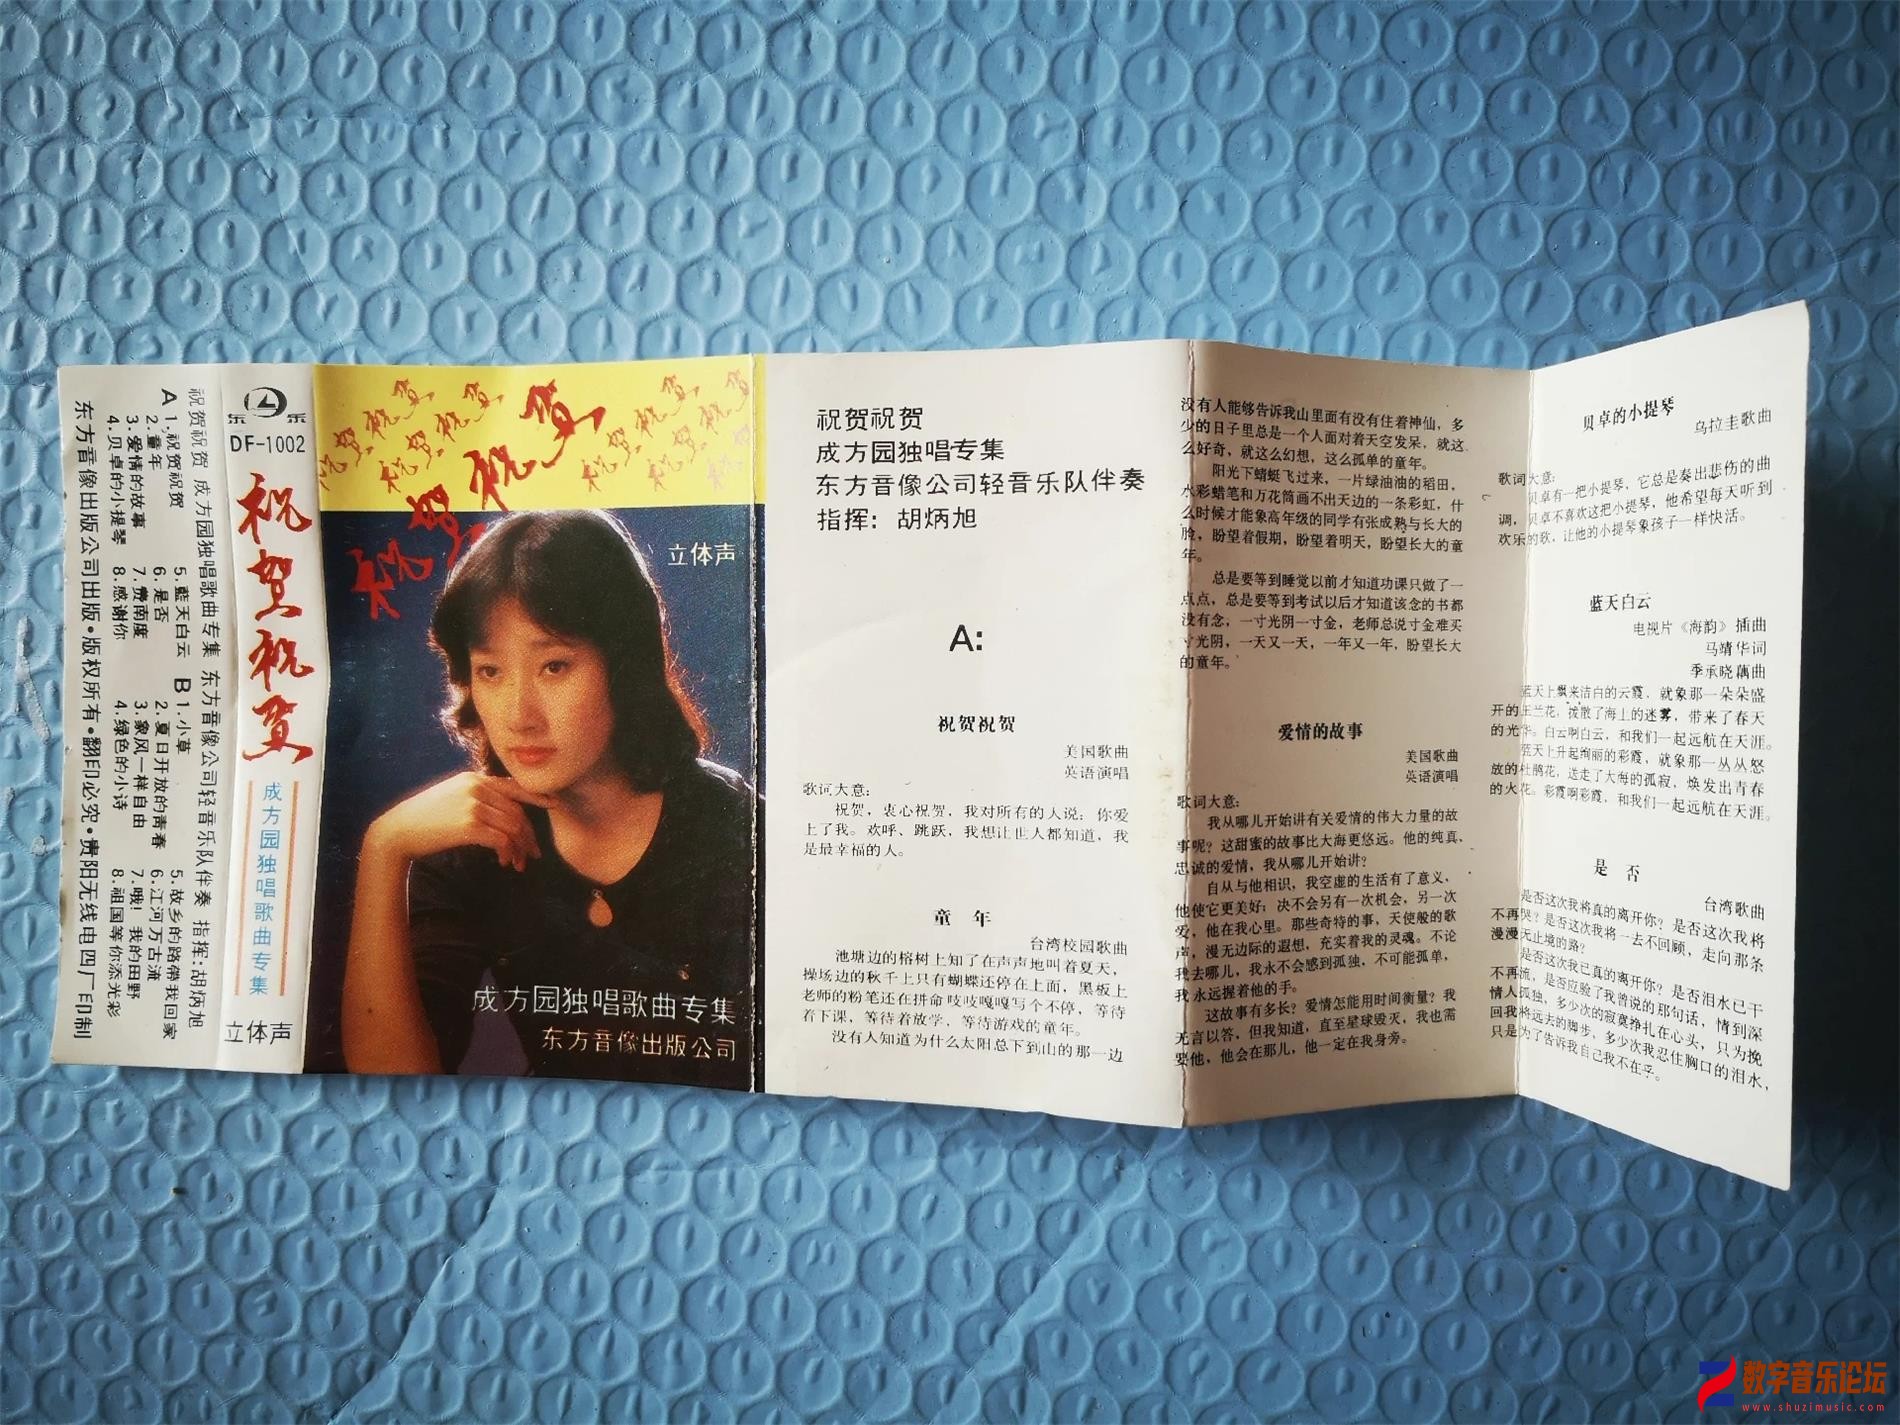 祝贺祝贺 成方园独唱歌曲专集 东方音像公司轻音乐队伴奏 指挥:胡炳旭
A 1.祝贺祝贺
2.童年
3.爱情的故事
4.贝卓的小提琴
5.蓝天白云
6.是否
7.赞南度
8.感谢你
B 1.小草
2.夏日开放的青春
3.象风一样自由
4.绿色的小诗
5.故乡的路带我回家
6.江河万古流
7.哦!我的田野
8.祖国等你添光彩
东方音像出版公司出版·版权所有·翻印必究·贵阳无线电四厂印制
东 乐
DF-1002
祝贺祝贺
成方园独唱歌曲专集
立体声
祝贺祝贺
立体声
成方园独唱歌曲专集
东方音像出版公司
祝贺祝贺
成方园独唱专集
东方音像公司轻音乐队伴奏
指挥:胡炳旭
A:
祝贺祝贺
美国歌曲
英语演唱
歌词大意:
祝贺,衷心祝贺,我对所有的人说:你爱
上了我。欢呼、跳跃,我想让世人都知道,我
是最幸福的人。
童 年
台湾校园歌曲
池塘边的榕树上知了在声声地叫着夏天,
操场边的秋千上只有蝴蝶还停在上面,黑板上
老师的粉笔还在拼命吱吱嘎嘎写个不停,等待
着下课,等待着放学,等待游戏的童年。
没有人知道为什么太阳总下到山的那一边
没有人能够告诉我山里面有没有住着神仙,多
少的日子里总是一个人面对着天空发呆,就这
么好奇,就这么幻想,这么孤单的童年。
阳光下蜻蜓飞过来,一片绿油油的稻田,
水彩蜡笔和万花筒画不出天边的一条彩虹,什
么时候才能象高年级的同学有张成熟与长大的
脸,盼望着假期,盼望着明天,盼望长大的童
年。
总是要等到睡觉以前才知道功课只做了一
点点,总是要等到考试以后才知道该念的书都
没有念,一寸光阴一寸金,老师总说寸金难买
寸光阴,一天又一天,一年又一年,盼望长大
的童年。
爱情的故事
美国歌曲
英语演唱
歌词大意:
我从哪儿开始讲有关爱情的伟大力量的故
事呢?这甜蜜的故事比大海更悠远。他的纯真、
忠诚的爱情,我从哪儿开始讲?
自从与他相识,我空虚的生活有了意义,
他使它更美好;决不会另有一次机会,另一次
爱,他在我心里。那些奇特的事,天使般的歌
声,漫无边际的遐想,充实着我的灵魂。不论
我去哪儿,我永不会感到孤独,不可能孤单,
我永远握着他的手。
这故事有多长?爱情怎能用时间衡量?我
无言以答,但我知道,直至星球毁灭,我也需
要他,他会在那儿,他一定在我身旁。
贝卓的小提琴
乌拉圭歌曲
歌词大意:
贝卓有一把小提琴,它总是奏出悲伤的曲
调,贝卓不喜欢这把小提琴,他希望每天听到
欢乐的歌,让他的小提琴象孩子一样快活。
蓝天白云
电视片《海韵》插曲
马靖华词
季承晓藕曲
蓝天上飘来洁白的云霞,就象那一朵朵盛
开的玉兰花,拨散了海上的迷雾,带来了春天
的光华。白云啊白云,和我们一起远航在天涯。
蓝天上升起绚丽的彩霞,就象那一丛丛怒
放的杜鹃花,送走了大海的孤寂,焕发出青春
的火花。彩霞啊彩霞,和我们一起远航在天涯。
是 否
台湾歌曲
是否这次我将真的离开你?是否这次我将
不再哭?是否这次我将一去不回顾,走向那条
漫漫无止境的路?
是否这次我已真的离开你?是否泪水已干
不再流,是否应验了我曾说的那句话,情到深
情人孤独,多少次的寂寞挣扎在心头,只为挽
回我将远去的脚步,多少次我忍住胸口的泪水,
只是为了告诉我自己我不在乎。
数字音乐论坛
www.shuzimusic.com